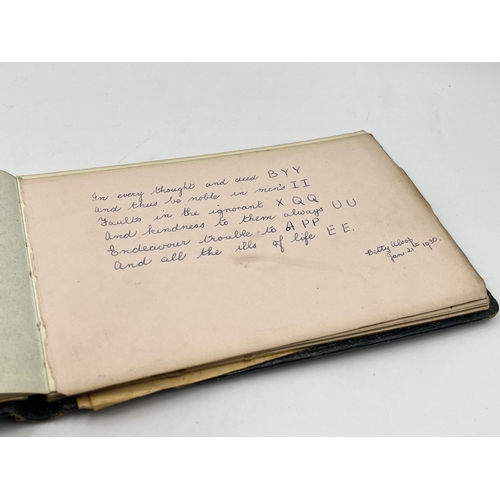 In every thought and deed B Y Y
And thus be noble in men's I I
Faults in the ignorant X Q Q
And kindness to them always U U
Endeavour trouble to A P P
And all the ills of life E E.
Betty Alsop
Jan 21st 1930.